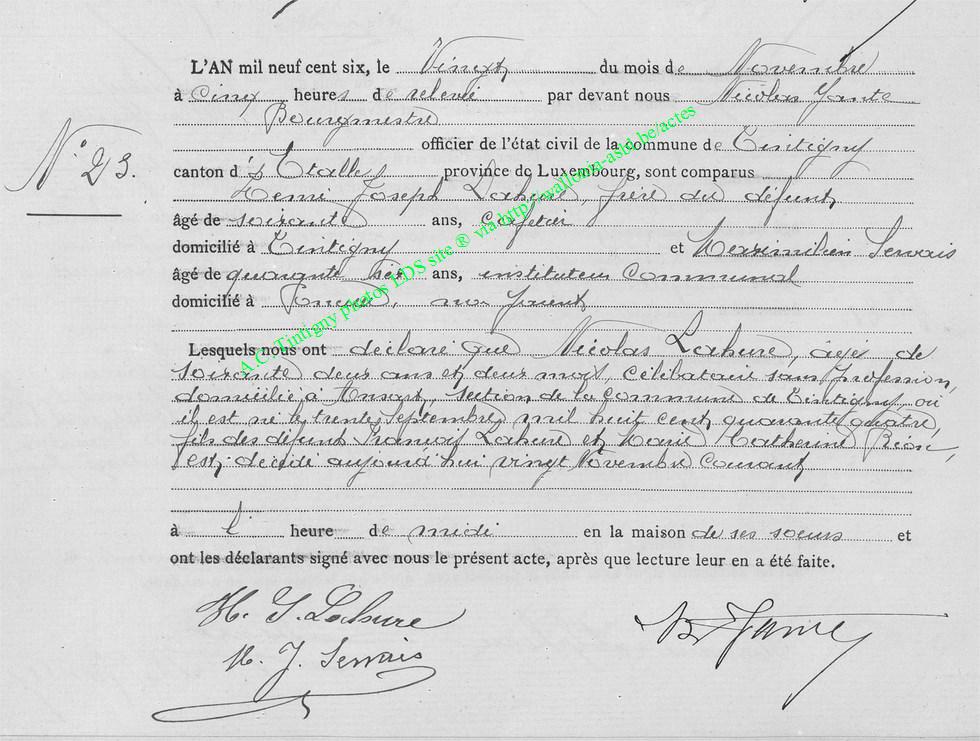 L'AN mil neuf cent six, le Vingt du mois de Novembre
à Cinq heures de relevée par devant nous Nicolas
Bourgmestre
officier de l'état civil de la commune de Tintigny
N° 23.
canton d'Etalle, province de Luxembourg, sont comparus
Henri Joseph Lahure, frère du défunt,
âgé de soixante ans, Cafetier
domicilié à Tintigny et Maximilien Servais
âgé de quarante six ans, instituteur Communal
domicilié à non parent
Lesquels nous ont déclaré que Nicolas Lahure, âgé de
soixante deux ans et deux mois, Célibataire sans profession,
domicilié à Ansart, section de la Commune de Tintigny, où
il est né le trente Septembre mil huit cent quarante quatre,
fils des défunt François Lahure et Marie Catherine
est décédé aujourd'hui vingt Novembre Courant
à l' heure de midi en la maison de ses soeurs et
ont les déclarants signé avec nous le présent acte, après que lecture leur en a été faite.
H. J. Lahure
M. J. Servais
A.C. Tintigny photos EDS site ® via http://wallonia-asbl.be/actes